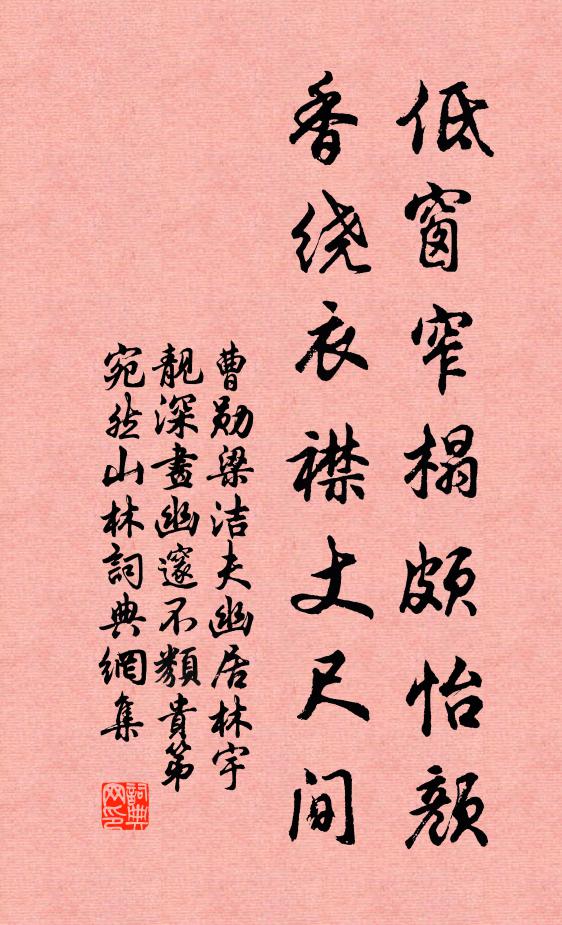 低窗窄榻颇怡颜
香绕衣襟丈尺间
曹勋梁洁夫幽居林宇
靓深画幽邃不類貴第
宛然山林詞典網集
詞典
网印